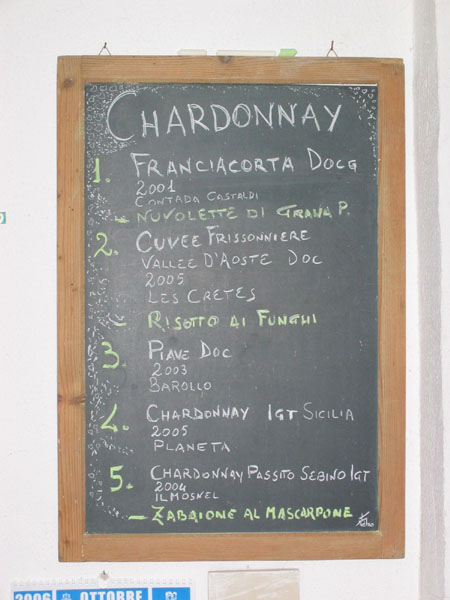 CHARDONNAY
1. FRANCIACORTA DOCG
2001
CONTADA CASTALDI
- NUVOLETTE DI GRANA P.
2. CUVEE FRISSONNIERE
VALLEE D'AOSTE DOC
2005
LES CRETES
- RISOTTO AI FUNGHI
3. PIAVE DOC
2003
BAROLLO
4. CHARDONNAY IGT SICILIA
2005
PLANETA
5. CHARDONNAY PASSITO SEBINO IGT
2004
IL MOSNEL
- ZABAIONE AL MASCARPONE
2006 OTTOBRE